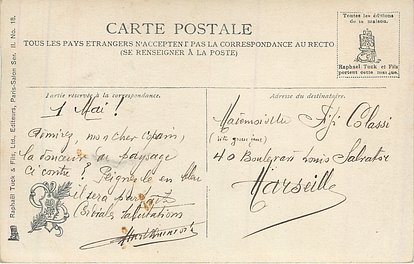 CARTE POSTALE
TOUS LES PAYS ETRANGERS N'ACCEPTENT PAS LA CORRESPONDANCE AU RECTO
(SE RENSEIGNER À LA POSTE)
Toutes les éditions
de la maison
Raphaël Tuck et Fils
portent cette marque.
Partie réservée à la correspondance.
Adresse du destinataire.
1 Mai !
Admirez mon cher copain,
la douceur du paysage
ci contre ! Peignez le en bleu
il sera parfait
Cordiales salutations
Mademoiselle Fifi Colassi
40 Boulevard Louis Salvator
Marseille
Raphaël Tuck & Fils, Ltd., Editeurs, Paris-Salon. Sec. II. No. 18.